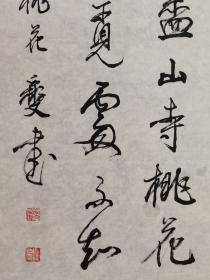 盡山寺桃花
覓處不知
桃花 書